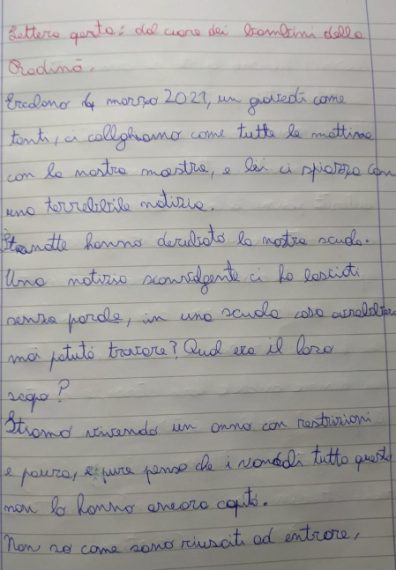 Lettera aperta: dal cuore dei bambini della
Rodinò.
Ercolano 4 marzo 2021, un giovedì come
tanti, ci colleghiamo come tutte le mattine
con la nostra maestra, e lei ci spiazza con
una terribile notizia.
Stanotte hanno derubato la nostra scuola.
Una notizia sconvolgente ci ha lasciati
senza parole, in una scuola cosa avrebbero
mai potuto trovare? Qual era il loro
scopo?
Stiamo vivendo un anno con restrizioni
e paura, e pure penso che i vandali tutto questo
non lo hanno ancora capito.
Non so come sono riusciti ad entrare,